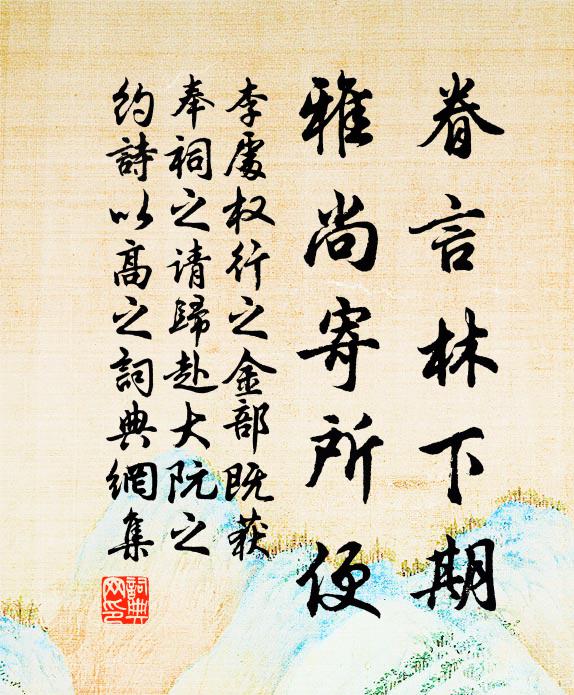 眷言林下期
雅尚寄所便
李處权行之金部既获
奉祠之请歸赴大阮之
約詩以高之詞典網集
詞典网印